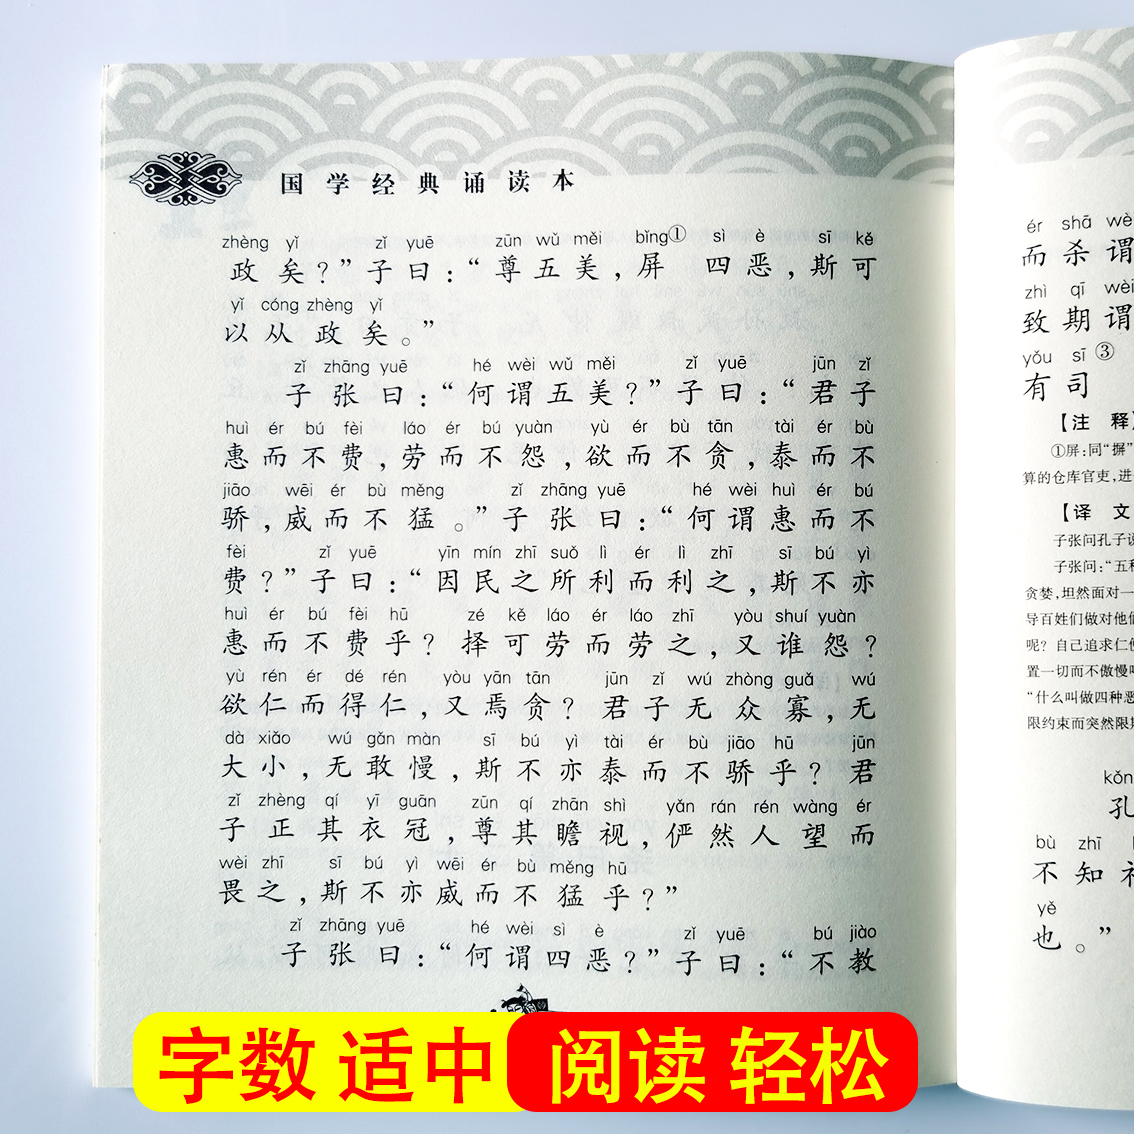 国学经典诵读本
zhèng yǐ zǐ yuē zūn wǔ měi bǐng① sì è sī kě
政矣？”子曰：“尊五美，屏四恶，斯可
yǐ cóng zhèng yǐ
以从政矣。”
zǐ zhāng yuē hé wèi wǔ měi zǐ yuē jūn zǐ
子张曰：“何谓五美？”子曰：“君子
huì ér bú fèi láo ér bú yuàn yù ér bù tān tài ér bù
惠而不费，劳而不怨，欲而不贪，泰而不
jiāo wēi ér bù měng zǐ zhāng yuē hé wèi huì ér bú
骄，威而不猛。”子张曰：“何谓惠而不
fèi zǐ yuē yīn mín zhī suǒ lì ér lì zhī sī bú yì
费？”子曰：“因民之所利而利之，斯不亦
huì ér bú fèi hū zé kě láo ér láo zhī yòu shuí yuàn
惠而不费乎？择可劳而劳之，又谁怨？
yù rén ér dé rén yòu yān tān jūn zǐ wú zhòng guǎ wú
欲仁而得仁，又焉贪？君子无众寡，无
dà xiǎo wú gǎn màn sī bú yì tài ér bù jiāo hū jūn
大小，无敢慢，斯不亦泰而不骄乎？君
zǐ zhèng qí yī guān zūn qí zhān shì yǎn rán rén wàng ér
子正其衣冠，尊其瞻视，俨然人望而
wèi zhī sī bú yì wēi ér bù měng hū
畏之，斯不亦威而不猛乎？”
zǐ zhāng yuē hé wèi sì è zǐ yuē bú jiào
子张曰：“何谓四恶？”子曰：“不教
ér shā wè
而杀谓
zhì qī wèi
致期谓
yǒu sī ③
有司
【注释】
①屏：同“摒”
算的仓库官吏，进
【译文
子张问孔子说
子张问：“五种
贪婪，坦然面对一
导百姓们做对他们
呢？自己追求仁便
置一切而不傲慢吗
“什么叫做四种恶
限约束而突然限期
kǒn
孔
bù zhī
不知礼
yě
也。”
字数 适中 阅读 轻松